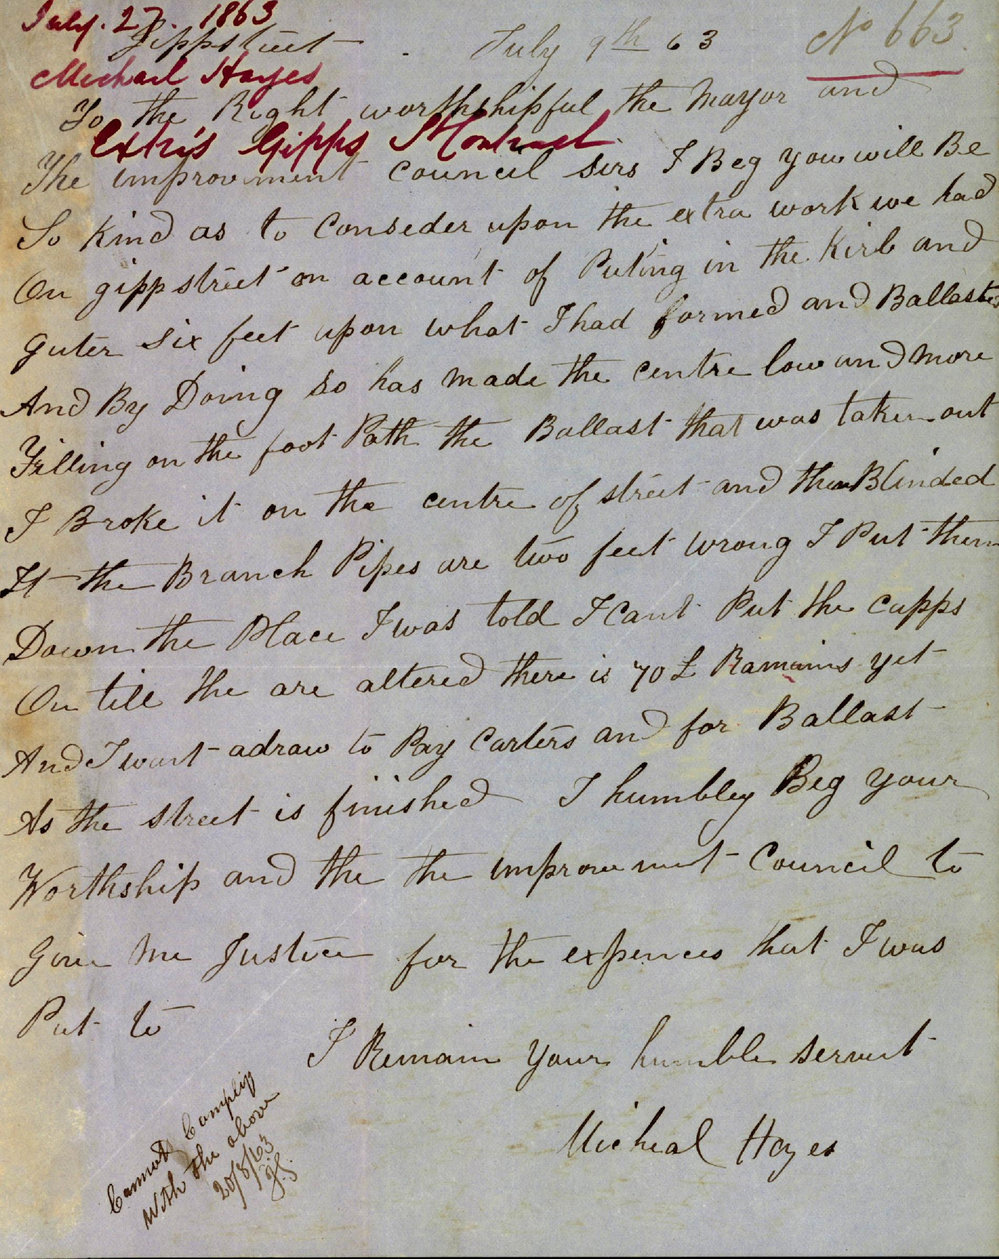 July. 27. 1863
Gippstreet - July 9th 63 No 663
Michael Hayes
To the Right worthshipful the Mayor and
Extras Gipps St Contract
The improvment council sirs I Beg you will Be
So kind as to Conseder upon the extra work we had
On gippstreet on account of Puting in the Kirb and
guter six feet upon what I had formed and Ballasted
And By Doing so has made the centre low and more
Filling on the foot Path the Ballast that was taken out
I Broke it on the centre of street and then Blinded
It the Branch Pipes are two feet wrong I Put them
Down the Place I was told I cant Put the capps
On till the are altered there is 70 £ Ramains yet
And I want adraw to Pay Carters and for Ballast
As the street is finished I humbley Beg your
Worthship and the the improvement Council to
Give me Justice for the expences that I was
Put to
I Remain your humble servent
Micheal Hayes
Cannot Comply
with the above
20/8/63
J.S.